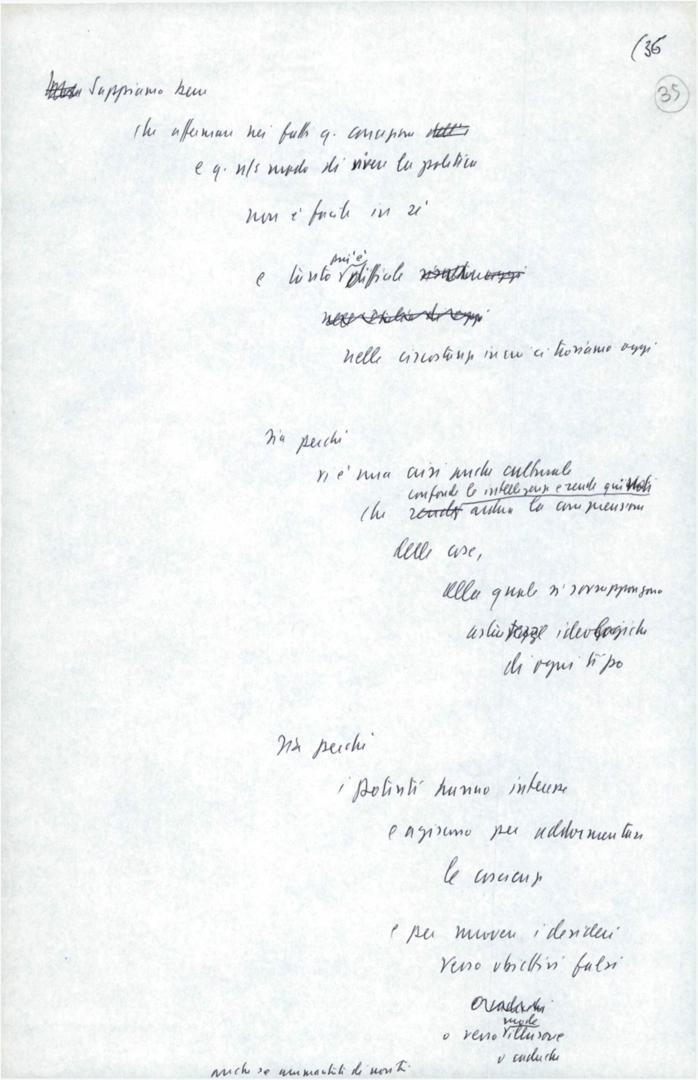 (36
35
Sappiamo bene
che affermare nei fatti q. concezione
e q. n/s modo di vivere la politica
non è facile in sé
e tanto più è difficile
nelle circostanze in cui ci troviamo oggi
sia perché
vi è una crisi anche culturale
confonde le intelligenze e rende quindi
che ardua la comprensione
delle cose,
alla quale si sovrappongono
astrattezze ideologiche
di ogni tipo
sia perché
i potenti hanno interesse
e agiscono per addormentare
le coscienze
e per muovere i desideri
verso obiettivi falsi
mode
o verso illusorie
o caduche
anche se ammantati di novità